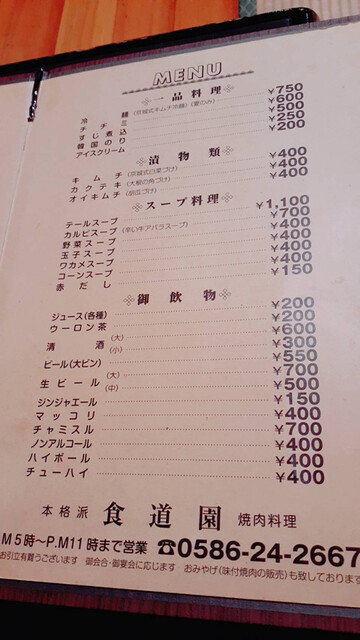 MENU
一品料理
冷麺(京城式キムチ冷麺)(夏のみ) ¥750
チヂミ ¥600
すじ煮込 ¥500
韓国のり ¥250
アイスクリーム ¥200
漬物類
キムチ(京城式白菜づけ) ¥400
カクテキ(大根の角づけ) ¥400
オイキムチ(胡瓜づけ) ¥400
スープ料理
テールスープ ¥1,100
カルビスープ(辛い牛アバラスープ) ¥700
野菜スープ ¥400
玉子スープ ¥400
ワカメスープ ¥400
コーンスープ ¥400
赤だし ¥150
御飲物
ジュース(各種) ¥200
ウーロン茶 ¥200
清酒(大) ¥600
(小) ¥300
ビール(大ビン) ¥550
生ビール(大) ¥700
(中) ¥500
ジンジャエール ¥150
マッコリ ¥400
チャミスル ¥700
ノンアルコール ¥400
ハイボール ¥400
チューハイ ¥400
本格派 食道園 焼肉料理
M5時〜P.M11時まで営業 ☎0586-24-2667
お引立有賞うございます 御会合・御宴会に応じます おみやげ(味付焼肉の販売)も致しております